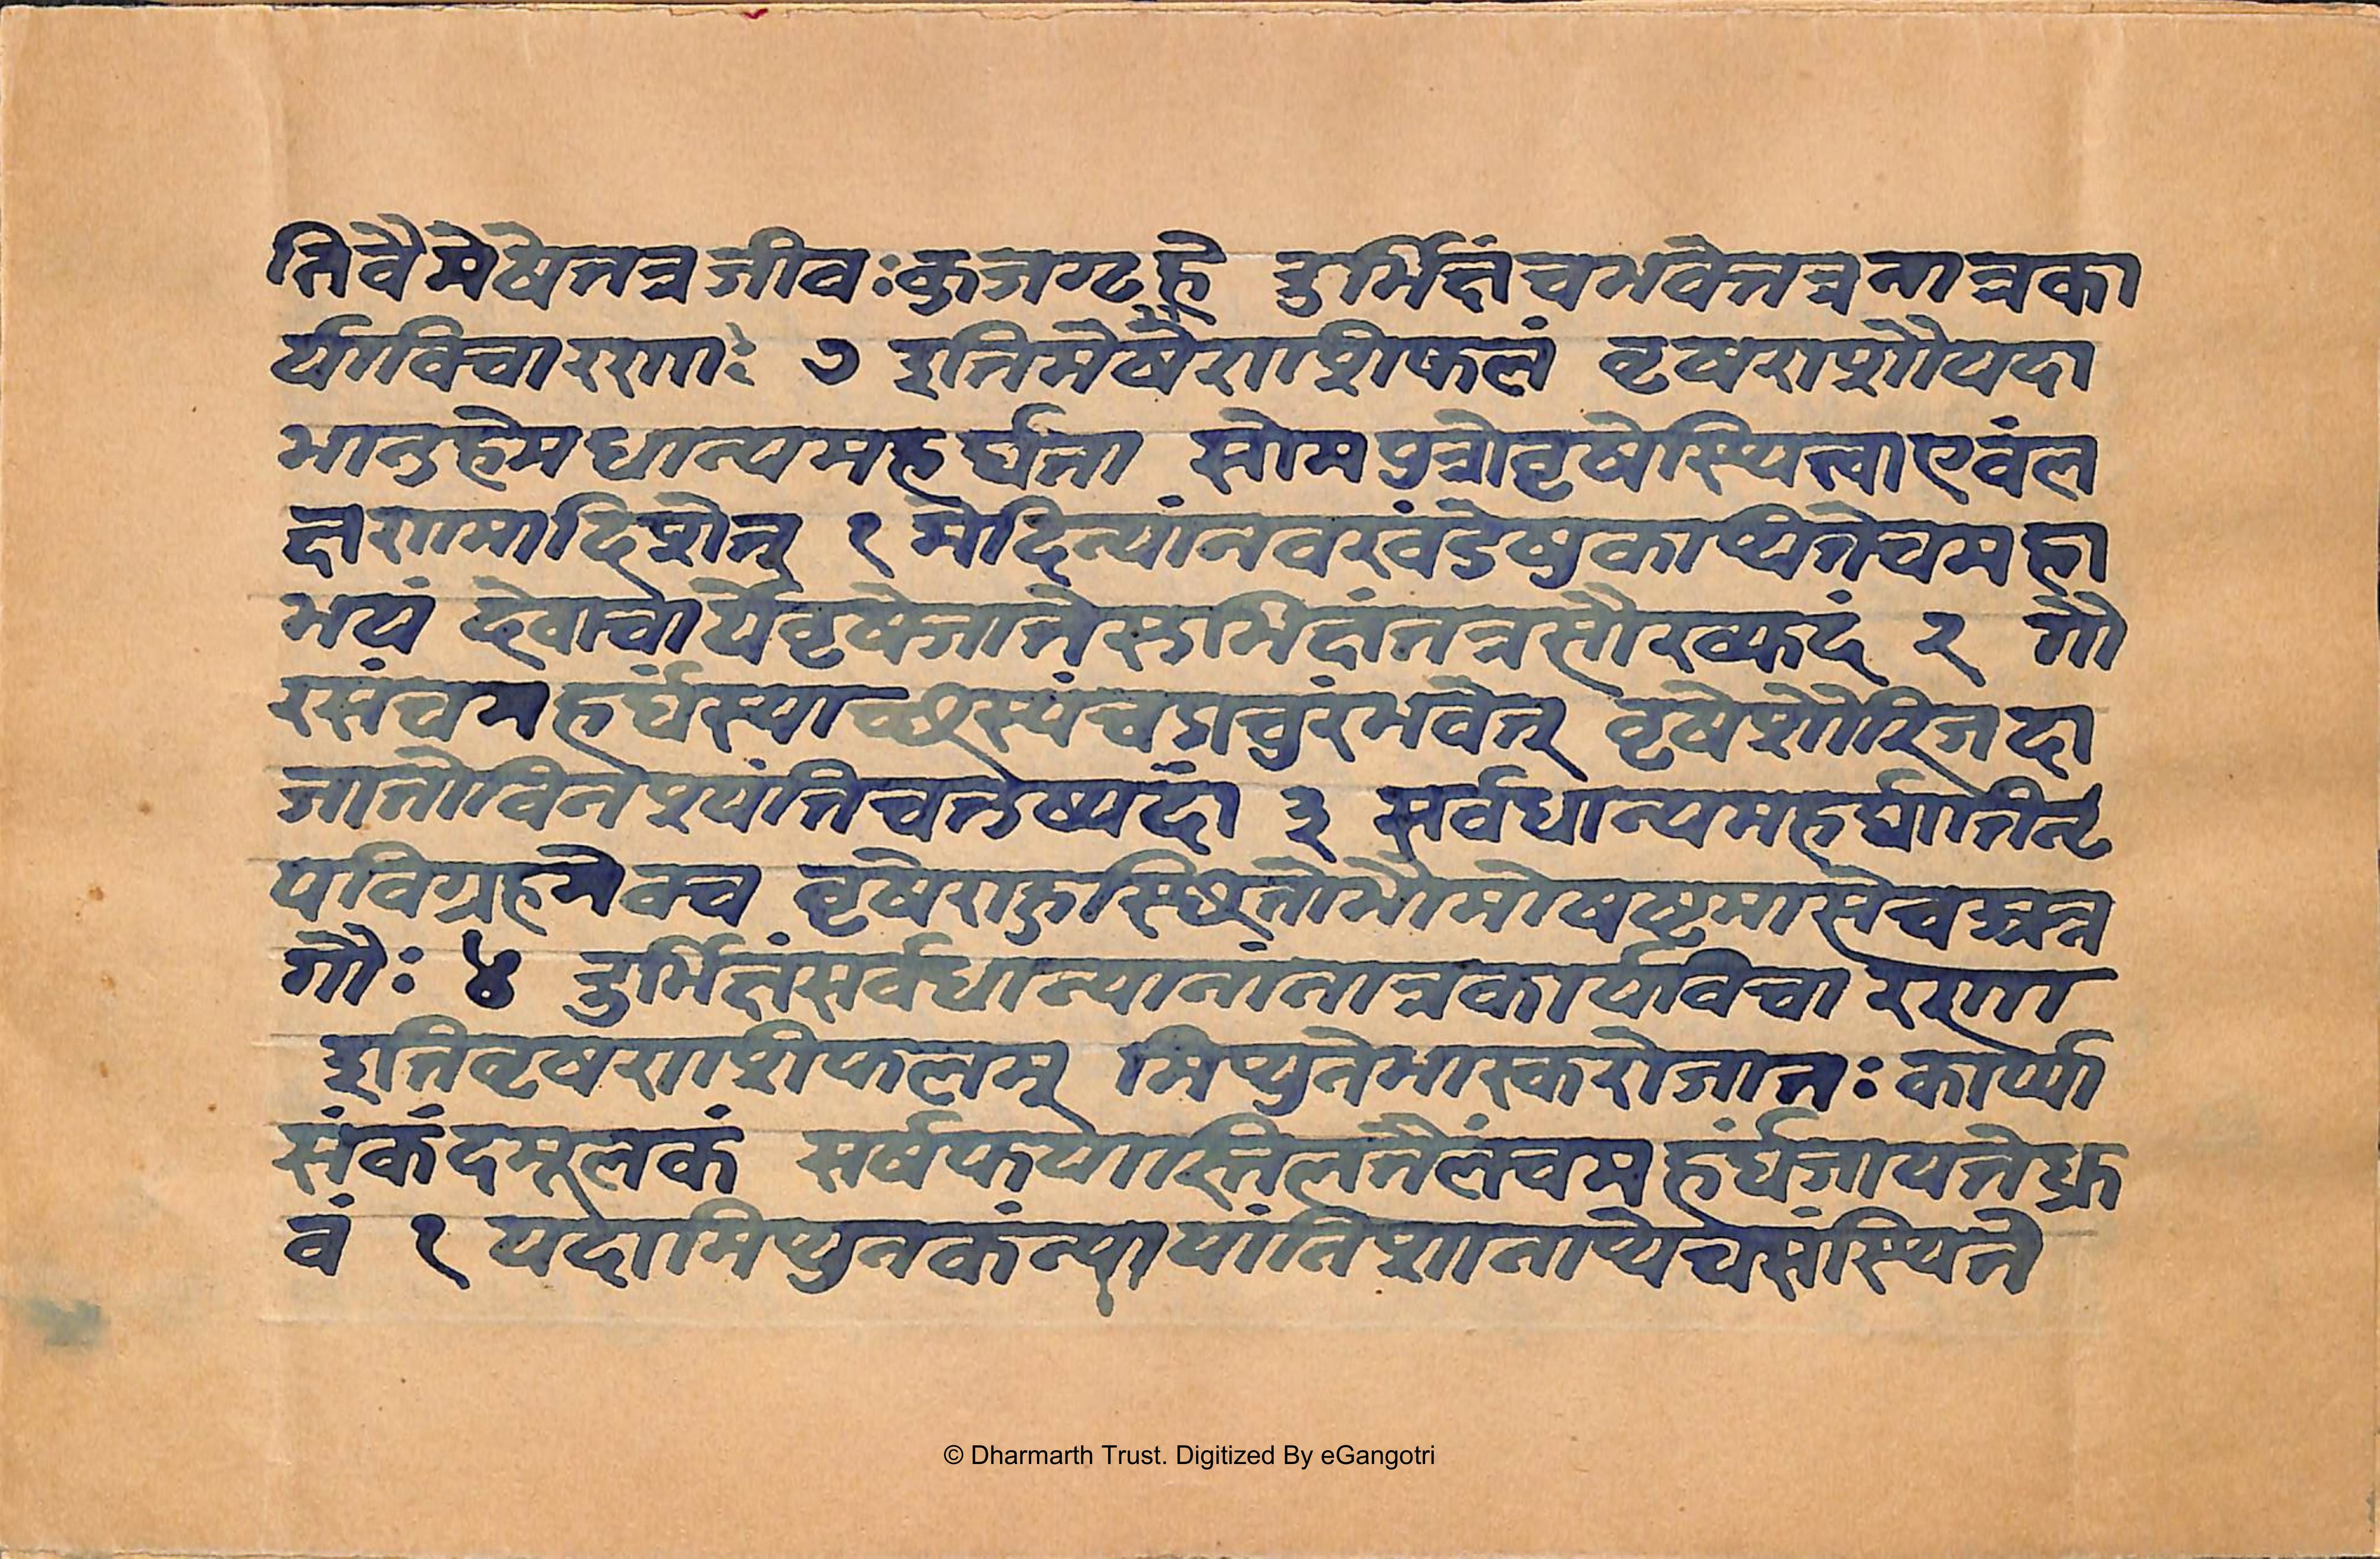 तिवैमेषेतत्रजीवःकुजगृहे दुर्भिक्षंचभवेत्तत्रनात्रका
र्याविचारणाः ७ इतिमेषैराशिफलं वृषराशौयदा
भानुहेमधान्यमहर्घता सोमपुत्रोवृषेस्थित्वाएवंल
क्षणमादिशेत् १ मेदिन्यांनवखंडेषुकाप्यतेचमहा
भयं देवाचार्येवृषेजातेसुभिक्षंतत्रसौख्यदं २ गौ
रसंचमहर्घंस्याच्छस्यंचप्रचुरंभवेत् वृषेशौरिजदा
जातोविनश्यंतिचतुष्पदां ३ सर्वधान्यमहर्घातिनृ
पविग्रहमेवच वृषेराहुस्थितोभौमोषष्टमासेच
गौः ४ दुर्भिक्षंसर्वधान्यानांनात्रकार्याविचारणा
इतिवृषराशिफलम् मिथुनेभास्करोजातः कार्प्पा
संकंदमूलकं सर्षफयास्तिलतैलंचमहंर्घजायतेध्रु
वं १ यदामिथुनकंन्यायांतिशानाथेचसंस्थिते
© Dharmarth Trust. Digitized By eGangotri